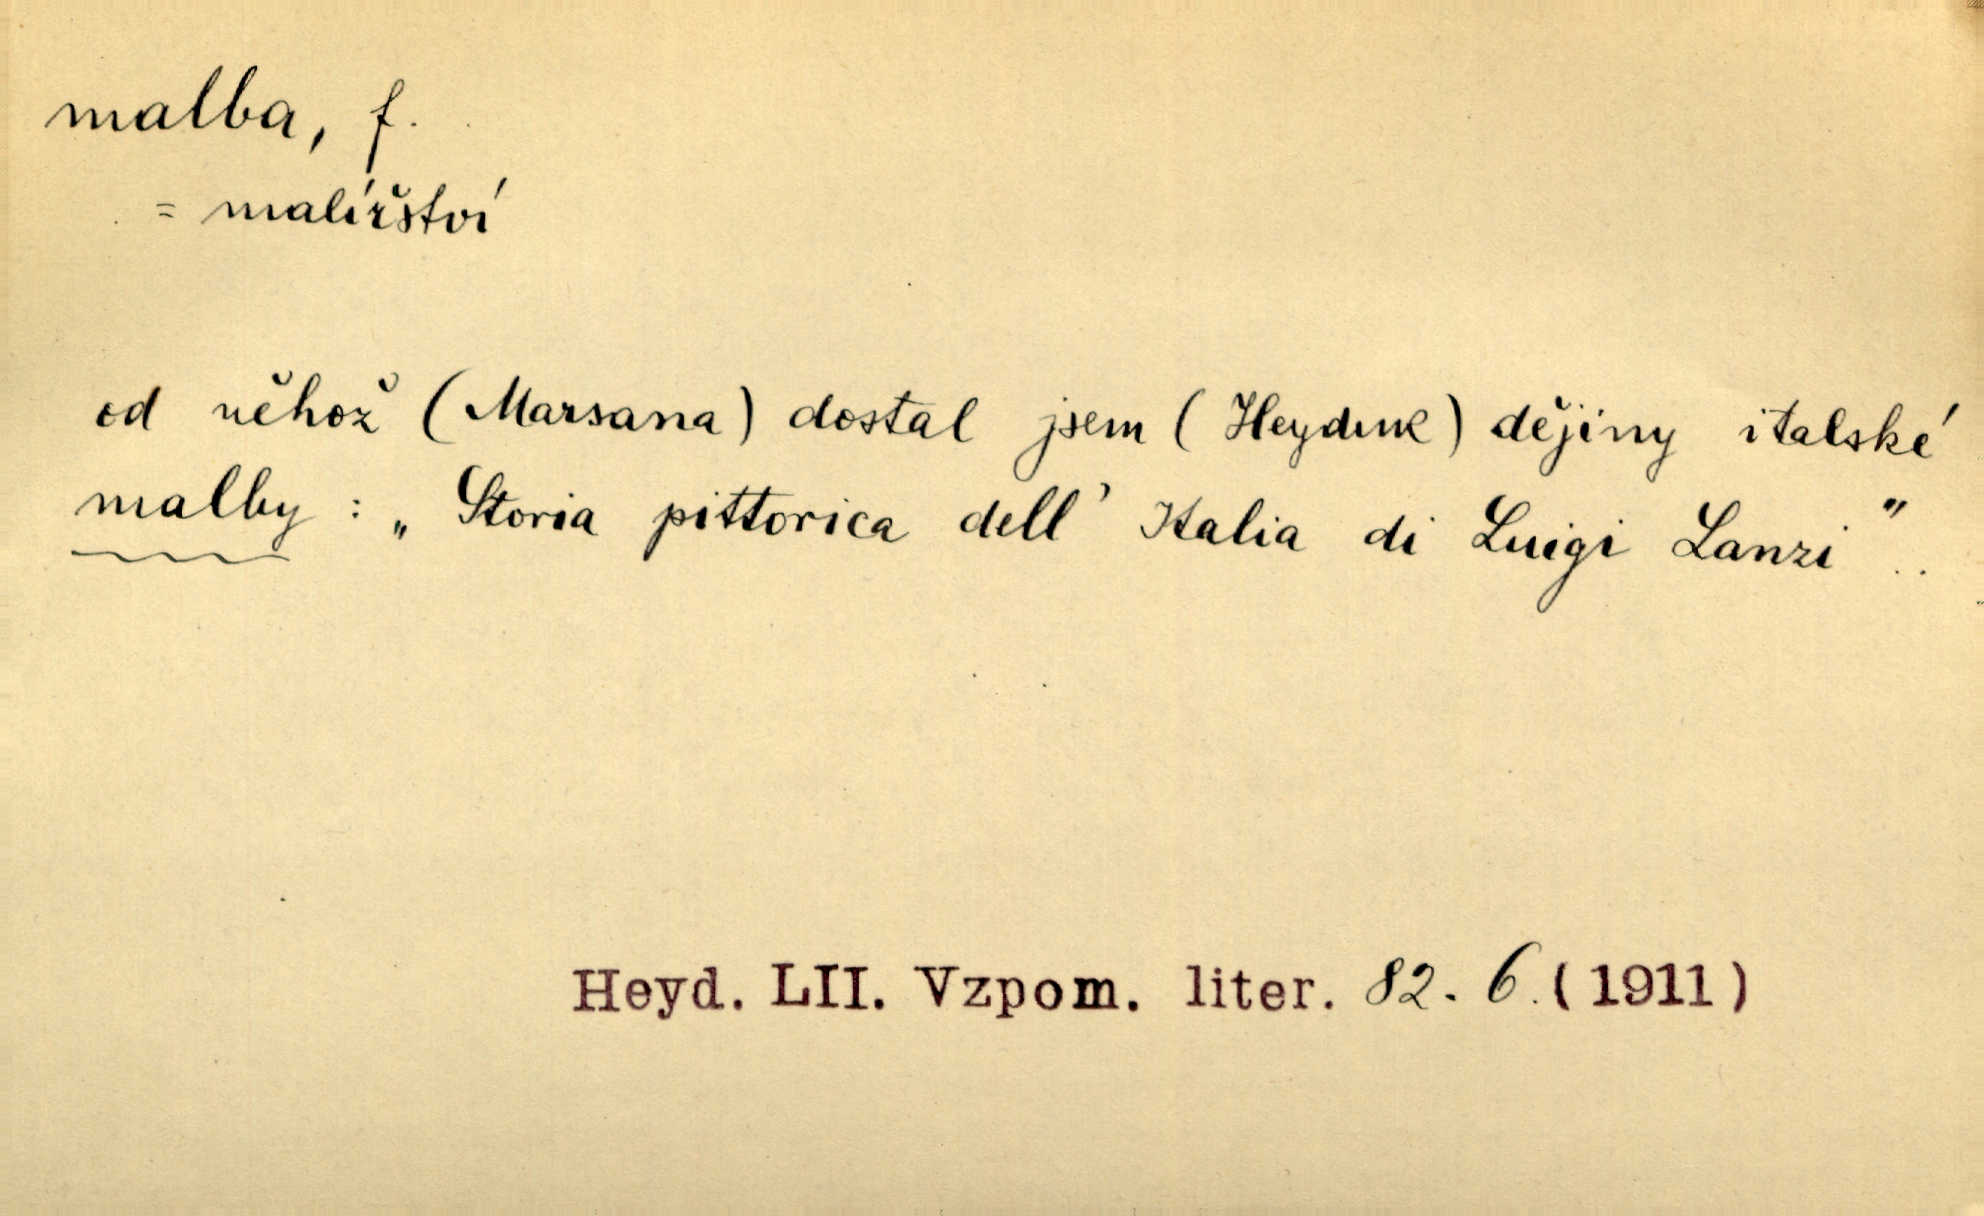 malba, f.
= malířství
od něhož (Marsana) dostal jsem (Heyduk) dějiny italské
malby : „Storia pittorica dell' Italia di Luigi Lanzi".
Heyd. LII. Vzpom. liter. 82. 6. (1911)